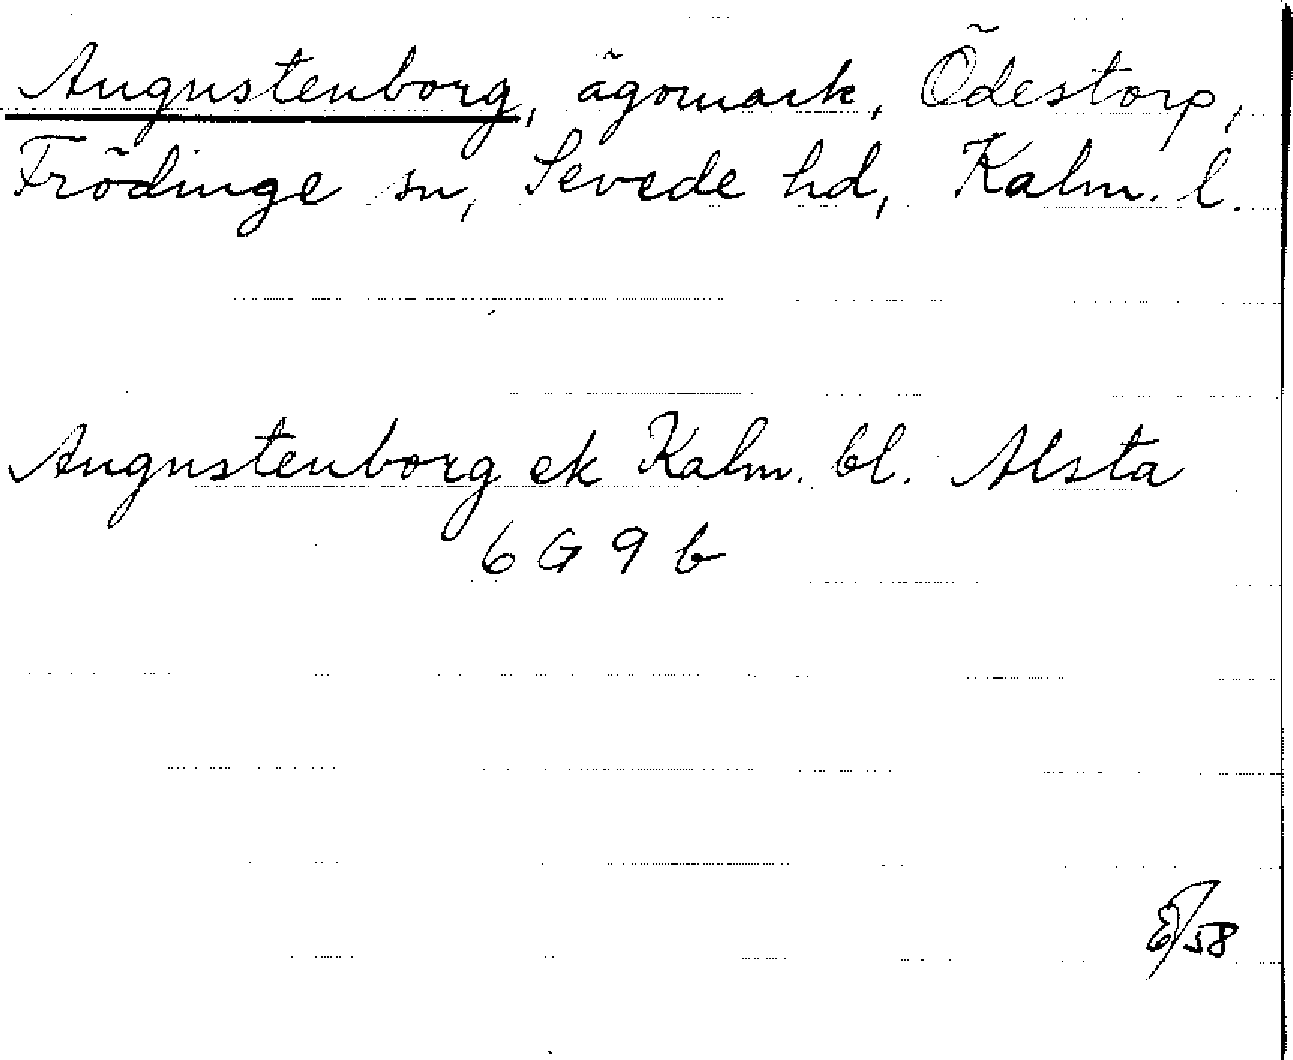 Augustenborg, ägomark, Ödestorp,
Frödinge sn, Sevede hd, Kalm. l.
Augustenborg ek Kalm. bl. Alsta
6 G 9 b
/58